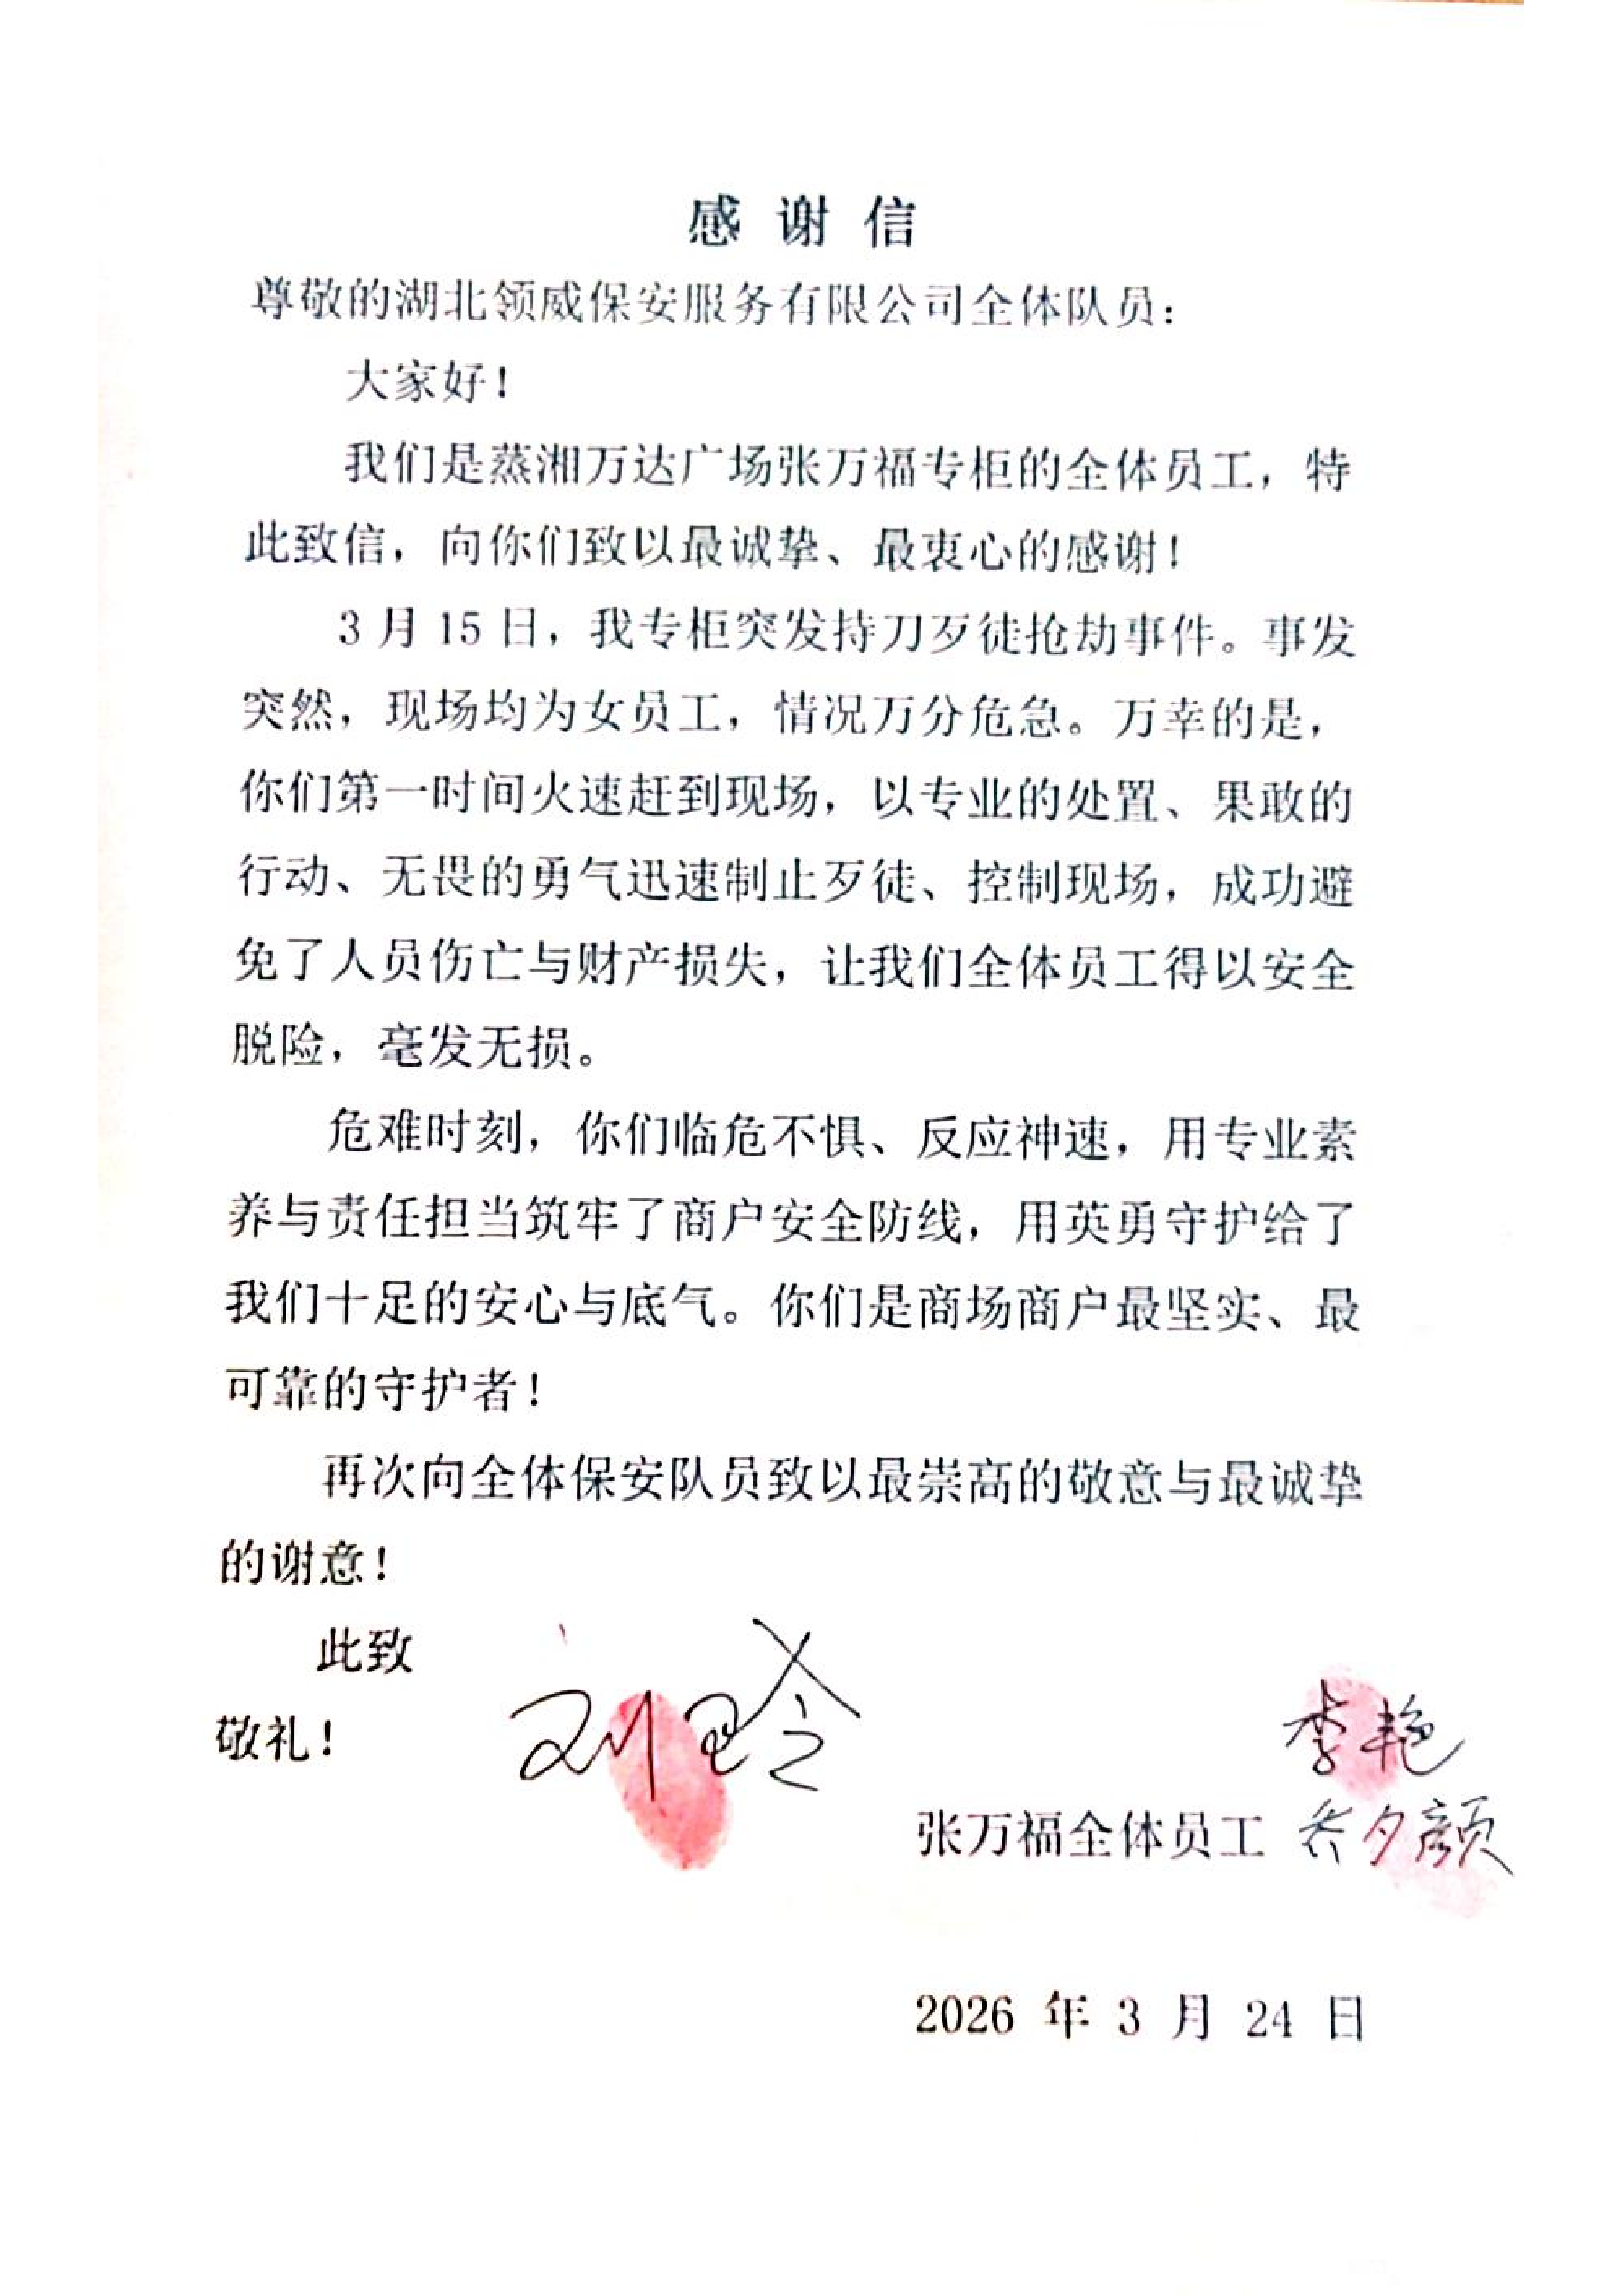 感谢信
尊敬的湖北领威保安服务有限公司全体队员：
大家好！
我们是蒸湘万达广场张万福专柜的全体员工，特
此致信，向你们致以最诚挚、最衷心的感谢！
3月15日，我专柜突发持刀歹徒抢劫事件。事发
突然，现场均为女员工，情况万分危急。万幸的是，
你们第一时间火速赶到现场，以专业的处置、果敢的
行动、无畏的勇气迅速制止歹徒、控制现场，成功避
免了人员伤亡与财产损失，让我们全体员工得以安全
脱险，毫发无损。
危难时刻，你们临危不惧、反应神速，用专业素
养与责任担当筑牢了商户安全防线，用英勇守护给了
我们十足的安心与底气。你们是商场商户最坚实、最
可靠的守护者！
再次向全体保安队员致以最崇高的敬意与最诚挚
的谢意！
此致
敬礼！
刘玲
李艳
张万福全体员工 乔夕颜
2026 年 3 月 24 日